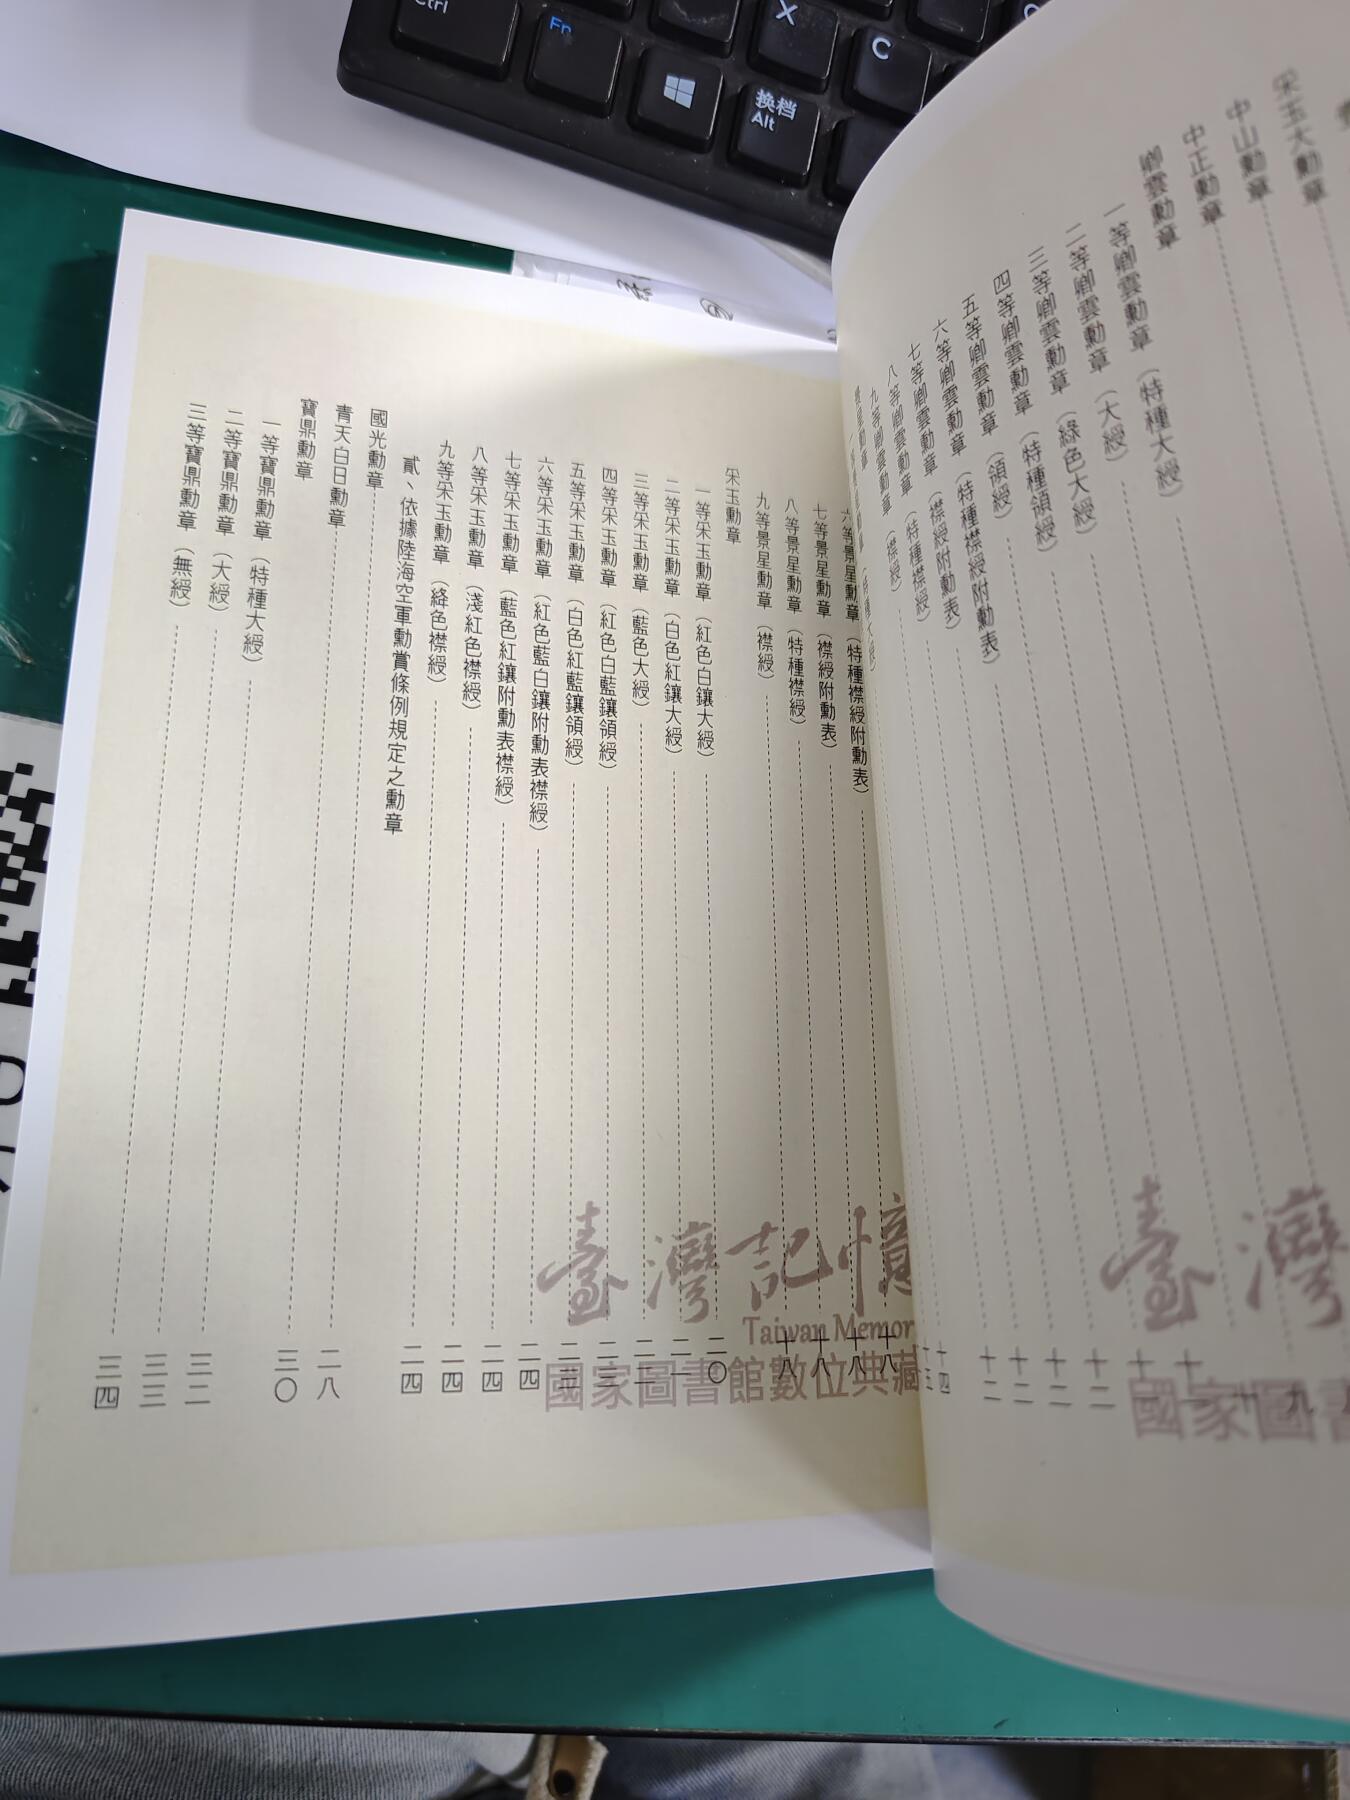 Ctrl
Fn
X
C
换档
Alt
采玉大勳章
中山勳章 九
中正勳章 十
卿雲勳章
一等卿雲勳章（特種大綬）
二等卿雲勳章（大綬）
三等卿雲勳章（綠色大綬） 十二
四等卿雲勳章（特種領綬） 十二
五等卿雲勳章（領綬） 十二
六等卿雲勳章（特種襟綬附勳表） 十二
七等卿雲勳章（襟綬附勳表）
八等卿雲勳章（特種襟綬）
九等卿雲勳章（襟綬）
六等景星勳章（特種襟綬附勳表） 十八
七等景星勳章（襟綬附勳表） 十八
八等景星勳章（特種襟綬） 十八
九等景星勳章（襟綬） 十八
采玉勳章
一等采玉勳章（紅色白鑲大綬） 二〇
二等采玉勳章（白色紅鑲大綬） 二一
三等采玉勳章（藍色大綬）
四等采玉勳章（紅色白藍鑲領綬）
五等采玉勳章（白色紅藍鑲領綬）
六等采玉勳章（紅色藍白鑲附勳表襟綬） 二四
七等采玉勳章（藍色紅鑲附勳表襟綬） 二四
八等采玉勳章（淺紅色襟綬） 二四
九等采玉勳章（絳色襟綬） 二四
貳、依據陸海空軍勳賞條例規定之勳章
國光勳章 二八
青天白日勳章 三〇
寶鼎勳章
一等寶鼎勳章（特種大綬） 三二
二等寶鼎勳章（大綬） 三三
三等寶鼎勳章（無綬） 三四
臺灣記憶
Taiwan Memor
國家圖書館數位典藏
臺灣
國家圖書